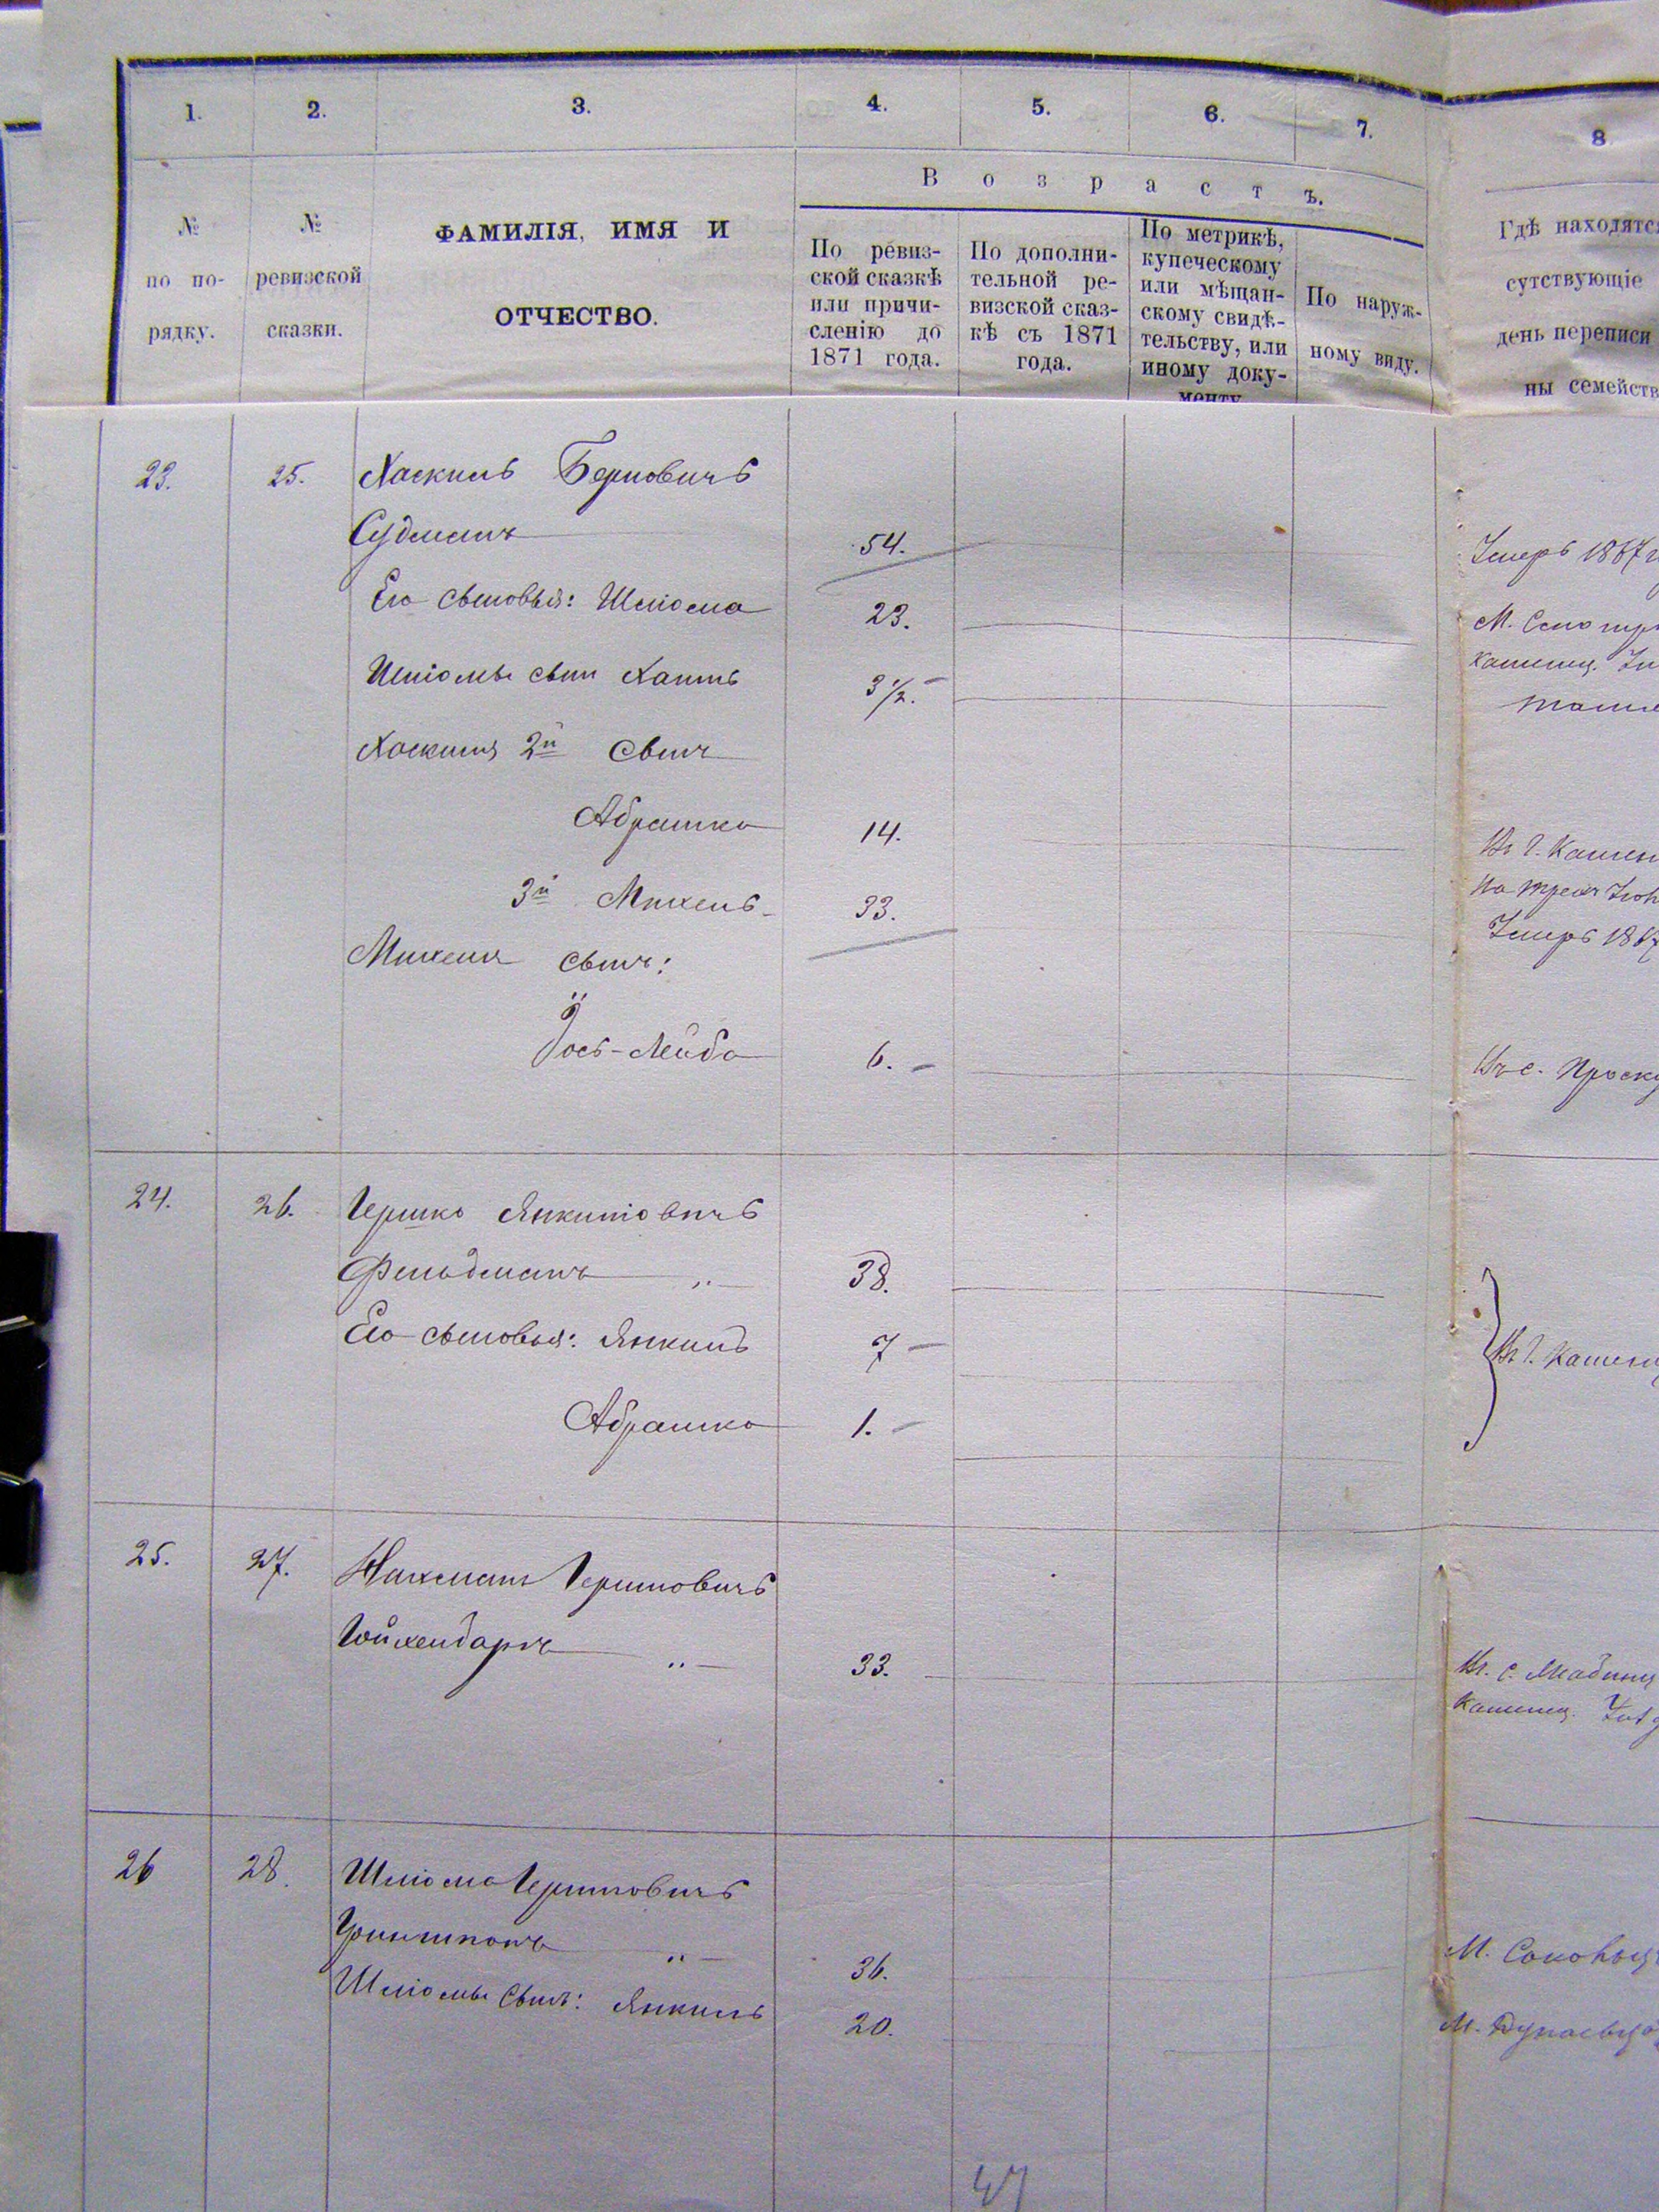 1. 2. 3. 4. 5. 6. 7. 8
Возрастъ.
№ по по- рядку.
№ ревизской сказки.
ФАМИЛІЯ, ИМЯ И
ОТЧЕСТВО.
По ревиз-
ской сказкѣ
или причи-
сленію до
1871 года.
По дополни-
тельной ре-
визской сказ-
кѣ съ 1871
года.
По метрикѣ,
купеческому
или мѣщан-
скому свидѣ-
тельству, или
иному доку-
менту
По наруж-
ному виду.
Гдѣ находятс
сутствующіе
день переписи
ны семейств
23. 25. Хаскиль Берковичъ
Судманъ 54. Умеръ 1867
Его сыновья: Шліома 23.
Шліомы сынъ Хаимъ 3 1/2.
Хаскиля 2й сынъ
Абрашко 14.
3й Михель 33. Умеръ 186
Михеля сынъ:
Йось-Лейба 6. Въ с. Проску
24. 26. Гершко Янкиліовичъ
Фельдманъ „ 38.
Его сыновья: Янкиль 7 Въ г. Камен
Абрашко 1.
25. 27. Нахманъ Гершковичъ
Гойхенбаргъ „ 33.
26 28. Шліома Гершковичъ
Гриншпонъ „ 36.
Шліомы сынъ: Янкиль 20. М. Дунаевц
47